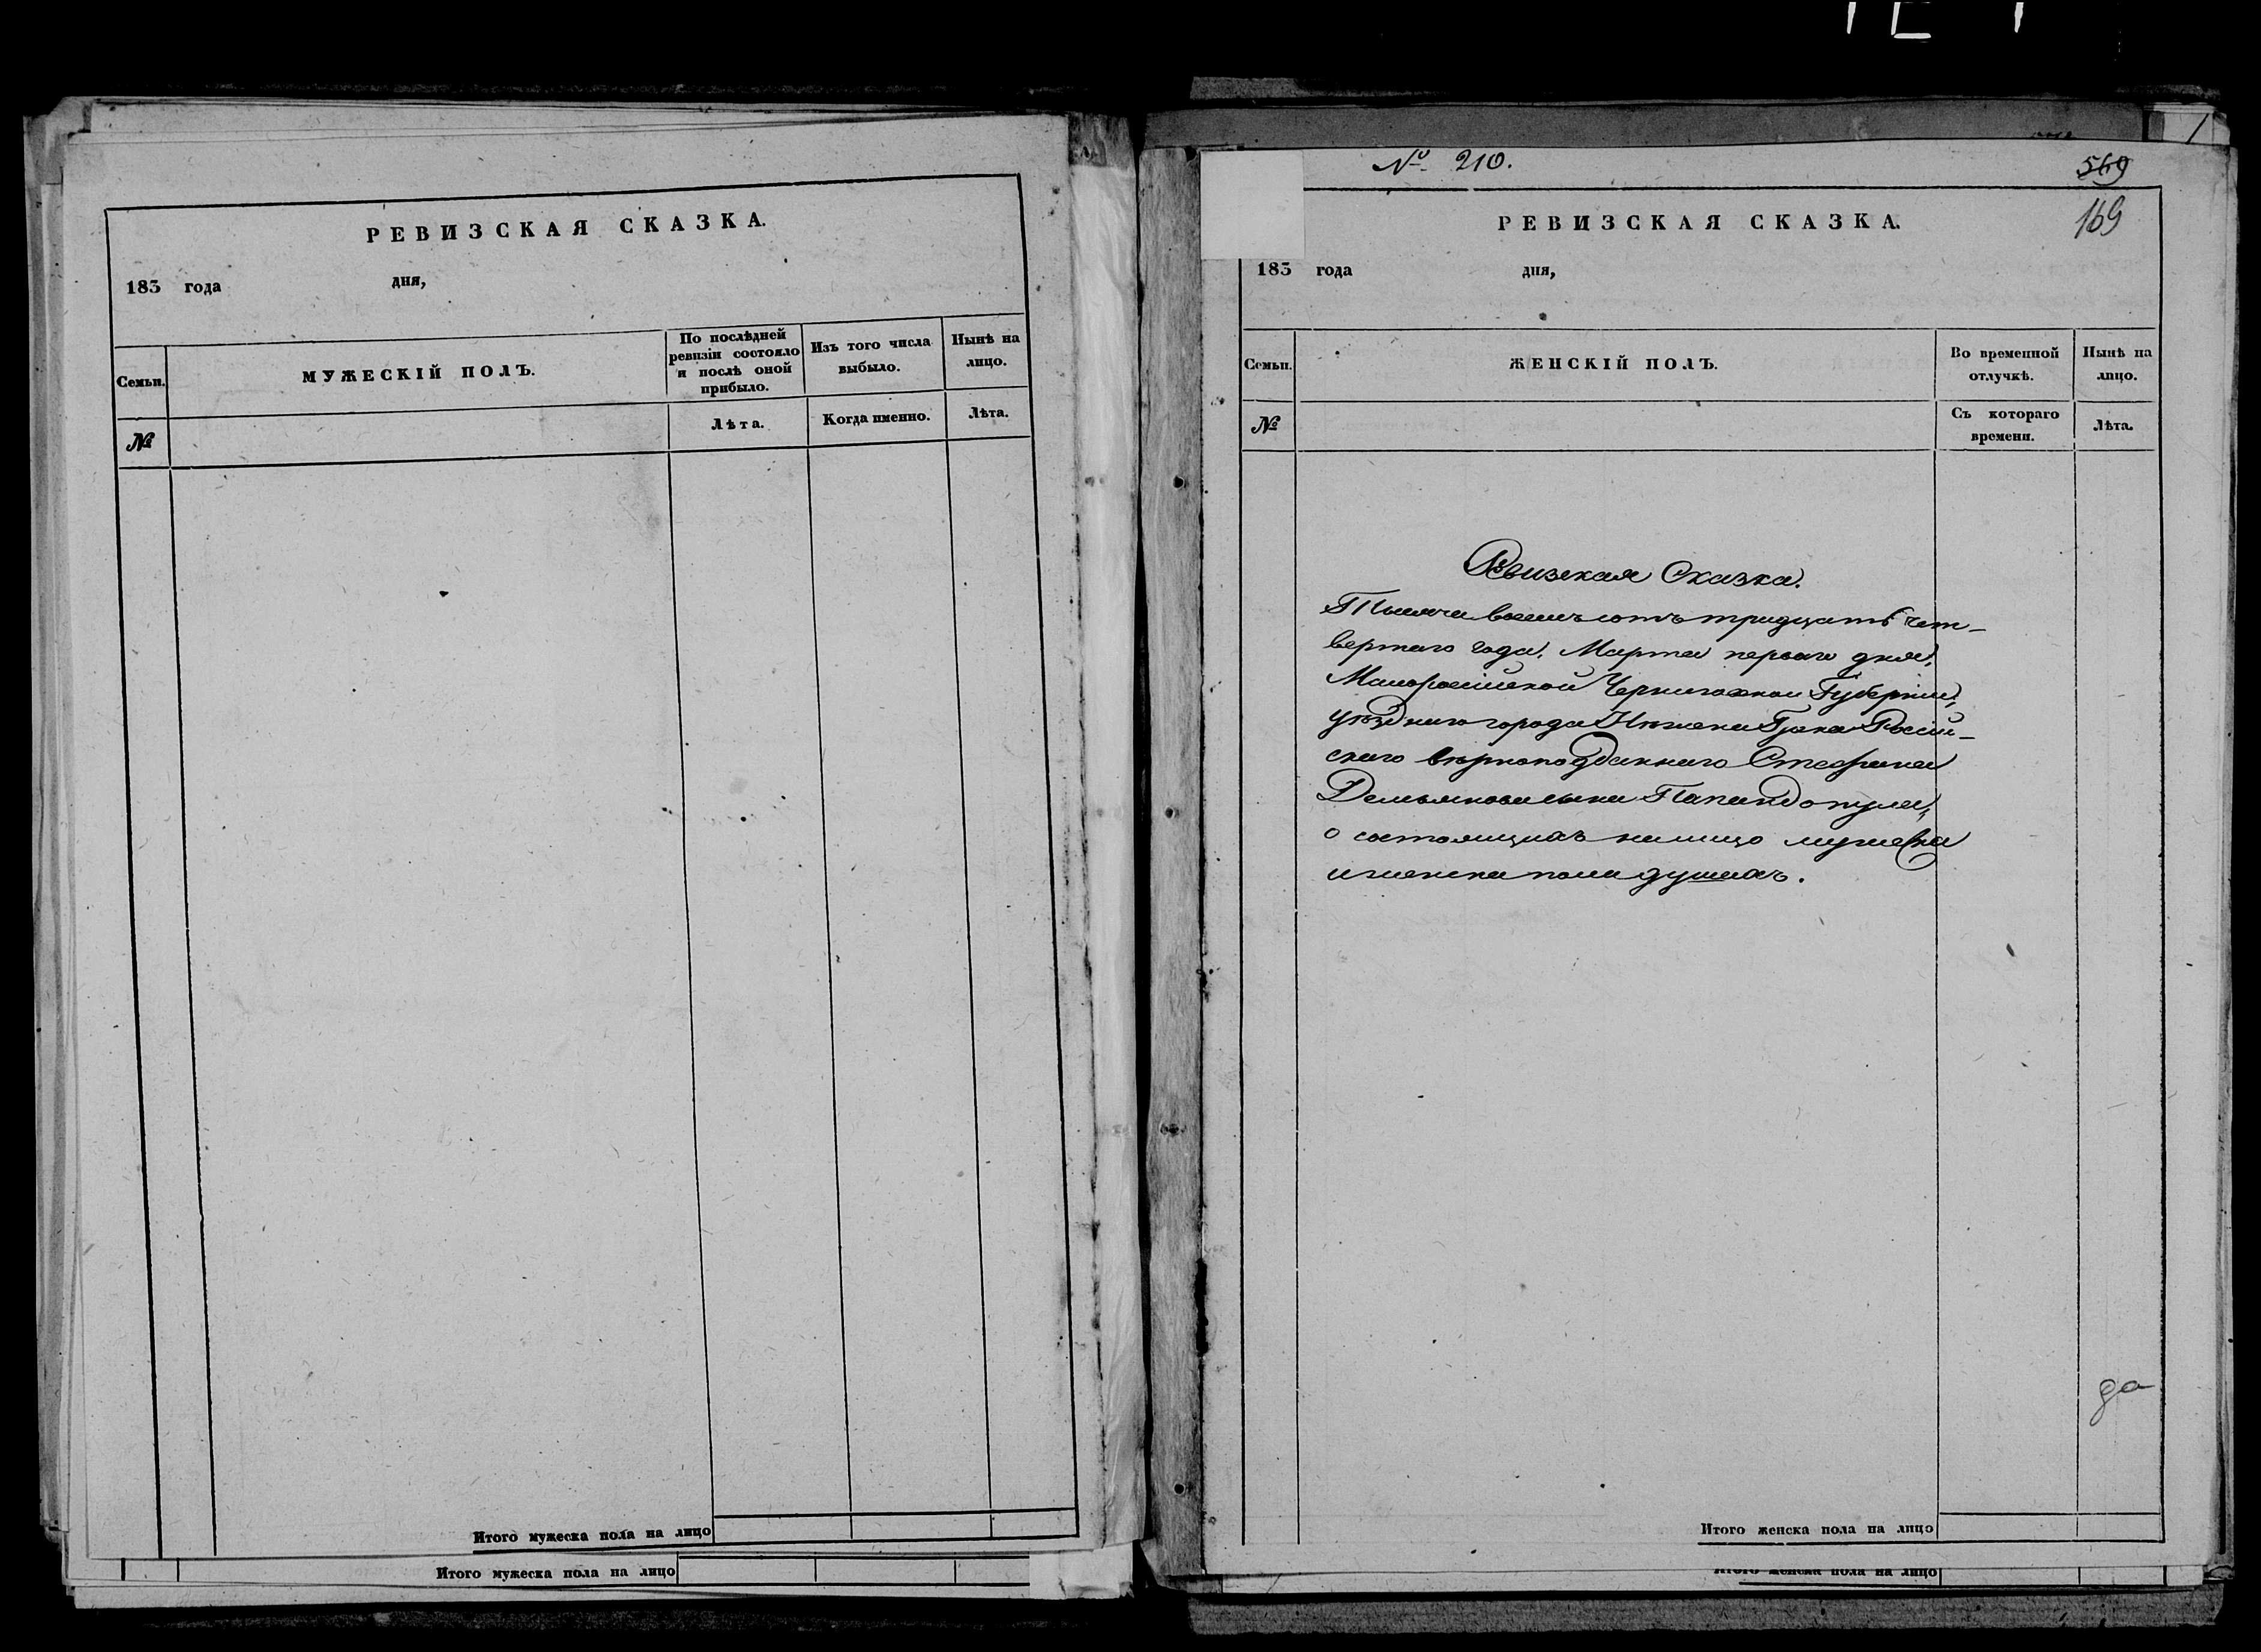 РЕВИЗСКАЯ СКАЗКА.
183 года дня,
Семьи.
МУЖЕСКІЙ ПОЛЪ.
По послѣдней
ревизіи состояло
и послѣ оной
прибыло.
Изъ того числа
выбыло.
Нынѣ на
лицо.
№
Лѣта.
Когда именно.
Лѣта.
Итого мужеска пола на лицо
Итого мужеска пола на лицо
1
№ 210.
569
169
РЕВИЗСКАЯ СКАЗКА.
183 года дня,
Семьи.
ЖЕНСКІЙ ПОЛЪ.
Во временной
отлучкѣ.
Нынѣ на
лицо.
№
Съ котораго
времени.
Лѣта.
Ревизская Сказка.
Тысяча восемъ сотъ тридцать чет-
вертаго года, Марта перваго дня,
Малоросійской Черниговской Губерніи,
уѣзднаго города Нѣжина Грека Росій-
скаго вѣрноподданнаго Стефана
Демьянова сына Папандопула,
о состоящихъ налицо мужеска
и женска пола душахъ.
да
Итого женска пола на лицо
Итого женска пола на лицо